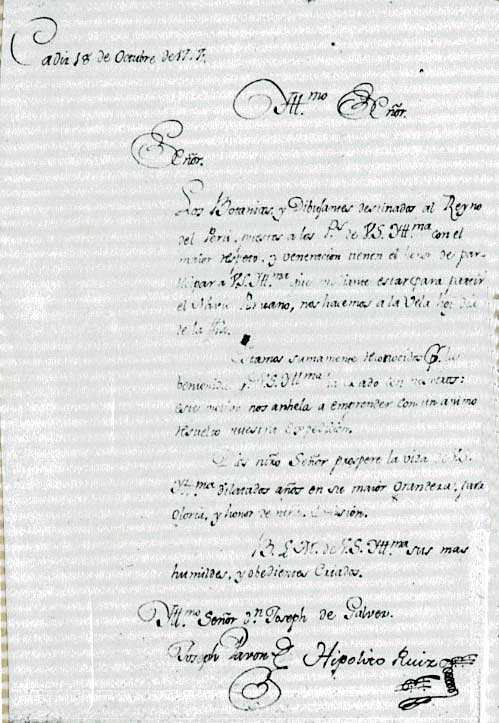 Cadiz 18 de Octubre de 17 7.
Yll.mo Señor.
Señor.
Los Botanicos, y Dibujantes destinados al Reyno
del Perú, puestos a los P.s de V.S. Yll.ma con el
maior respeto, y veneracion tienen el de par-
ticipar a V.S. Yll.ma que estar para partir
el Navio Peruano, nos hacemos a la Vela hoy dia
de la
Estamos sumamente reconocidos
V.S. Yll.ma ha usado con nosotros:
este motivo nos anhela a emprender con un animo
resuelto nuestra Expedicion.
Dios nũo Señor prospere la vida de V.S.
Yll.ma dilatados años en su maior grandeza, para
gloria, y honor de
B. L. M. de V.S. Yll.ma sus mas
humildes, y obedientes Criados.
Yll.mo Señor D.n Joseph de Galvez.
Joseph Pavon Hipolito Ruiz